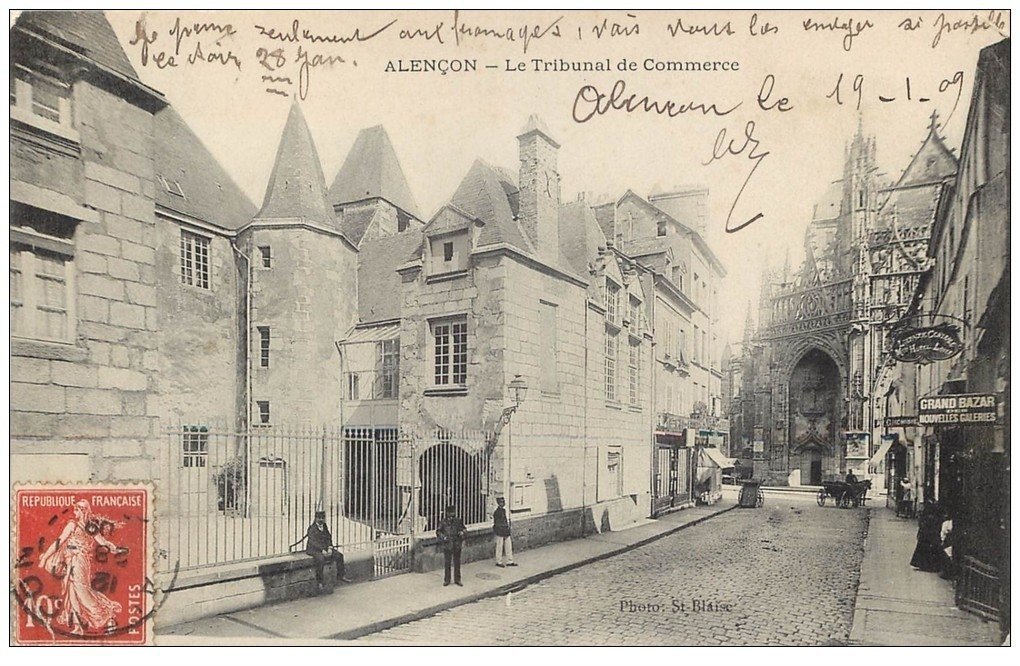 seulement aux fromages, vais vous les envoyer si possible
ce soir 28 Jan.
ALENÇON – Le Tribunal de Commerce
Alençon le 19-1-09
GRAND BAZAR
NOUVELLES GALERIES
REPUBLIQUE FRANÇAISE
10c
POSTES
Photo: St Blaise